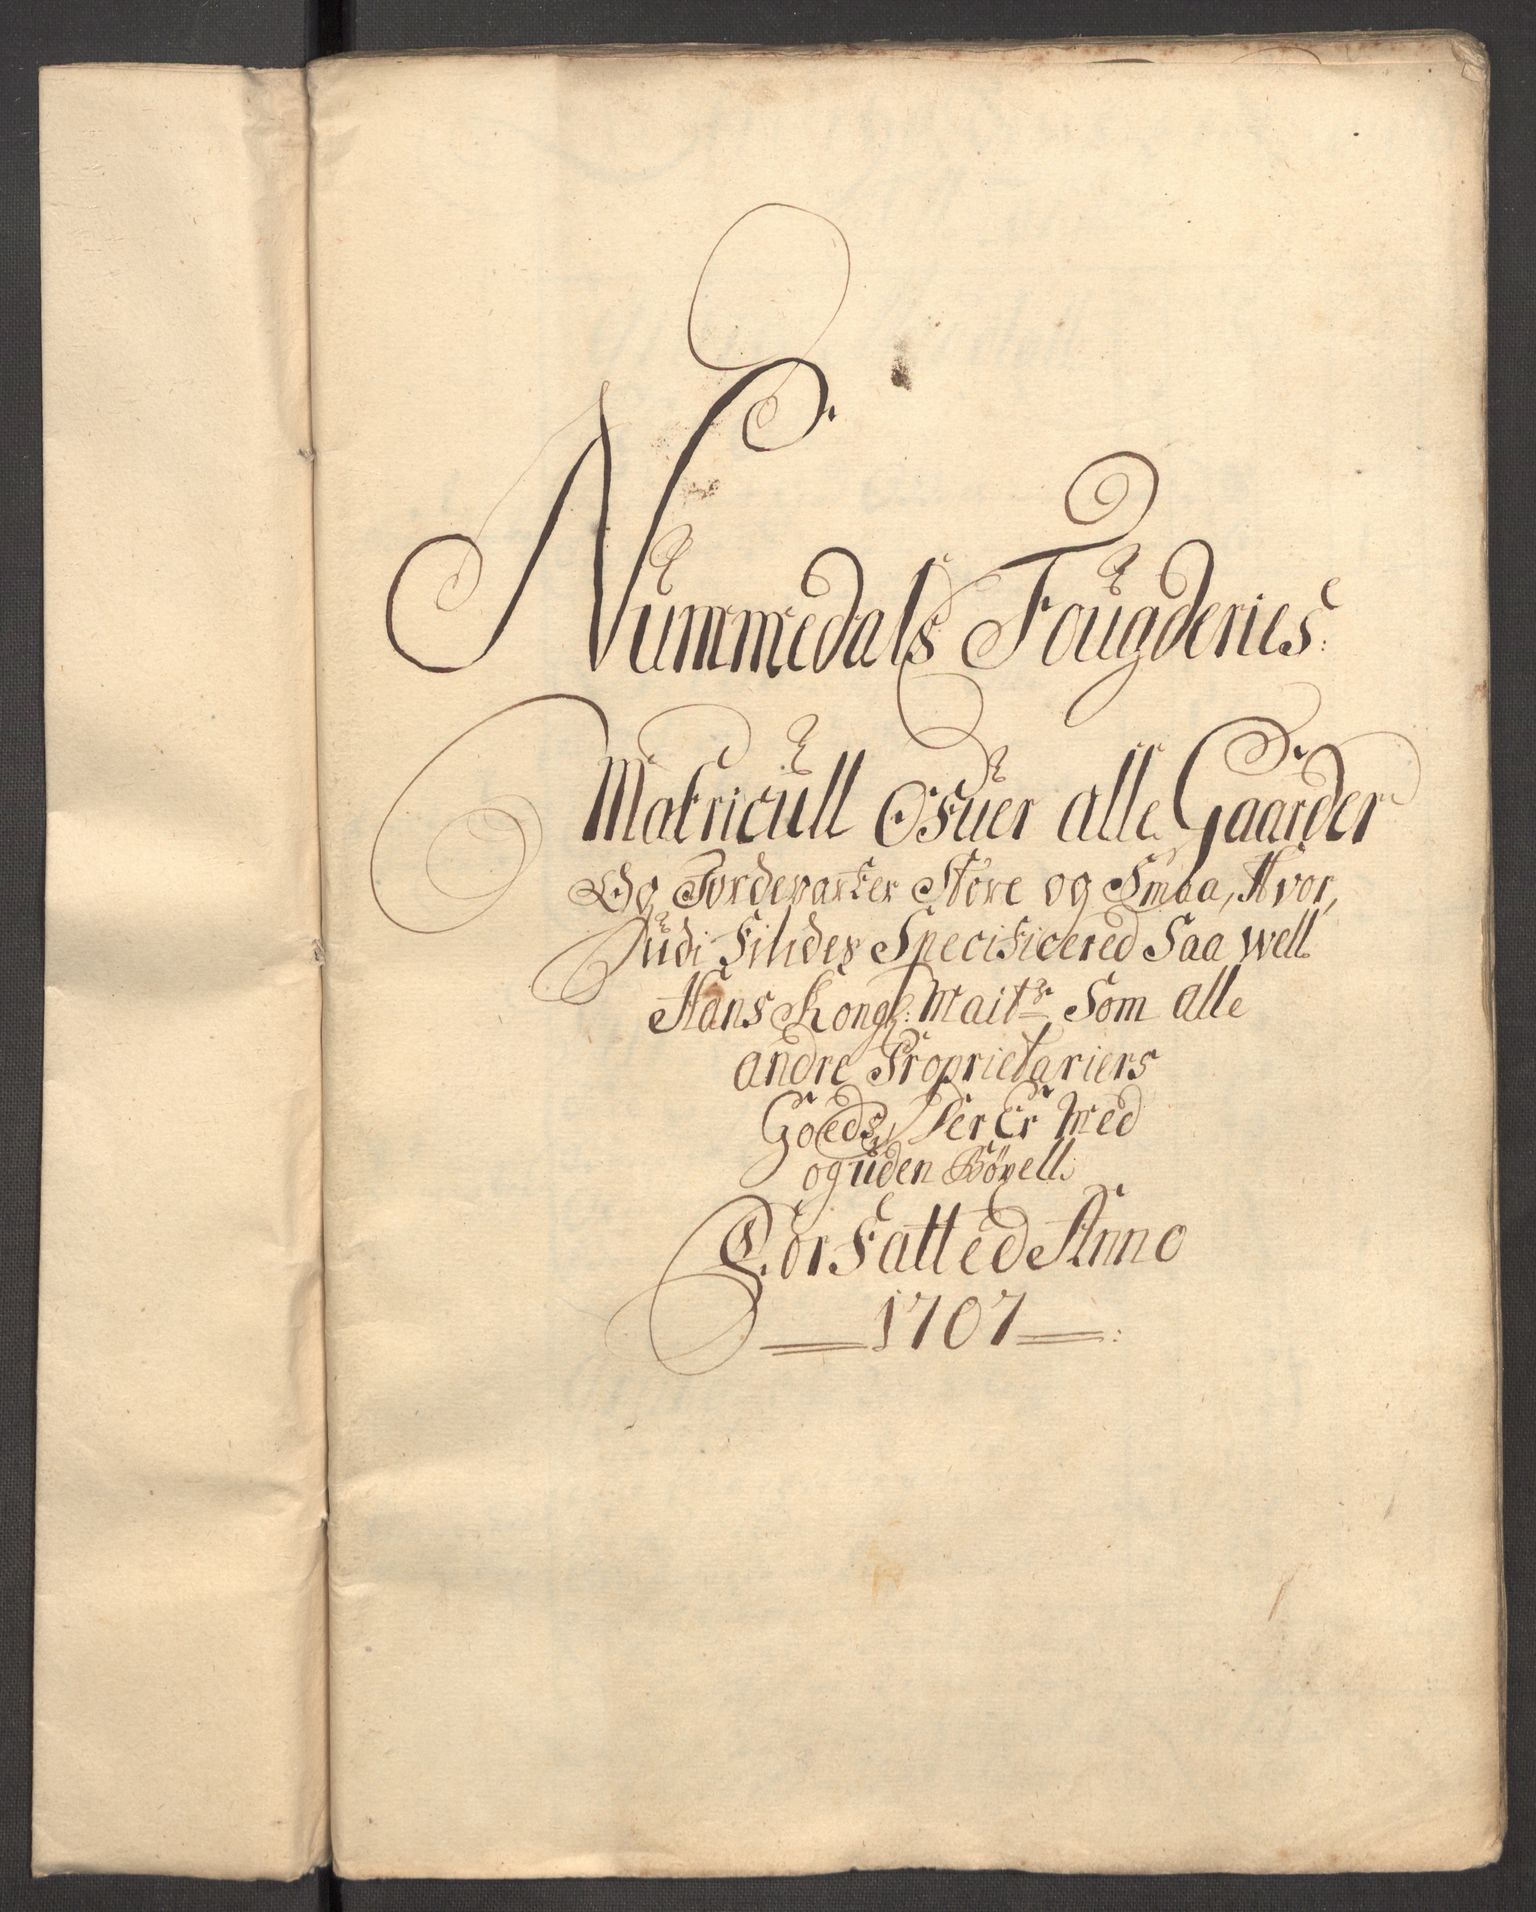 Nummedals Fougderies:
Matricull Ofuer alle Gaarder
Og Fordeparter Store og Smaa, Hvor,
Udi Findes Specificered Saa well
Hans Kongl: Maitz Som alle
andre Proprietariers
Goeds, Der Er Med
og uden Bøxell.
Forfatted Anno
1707